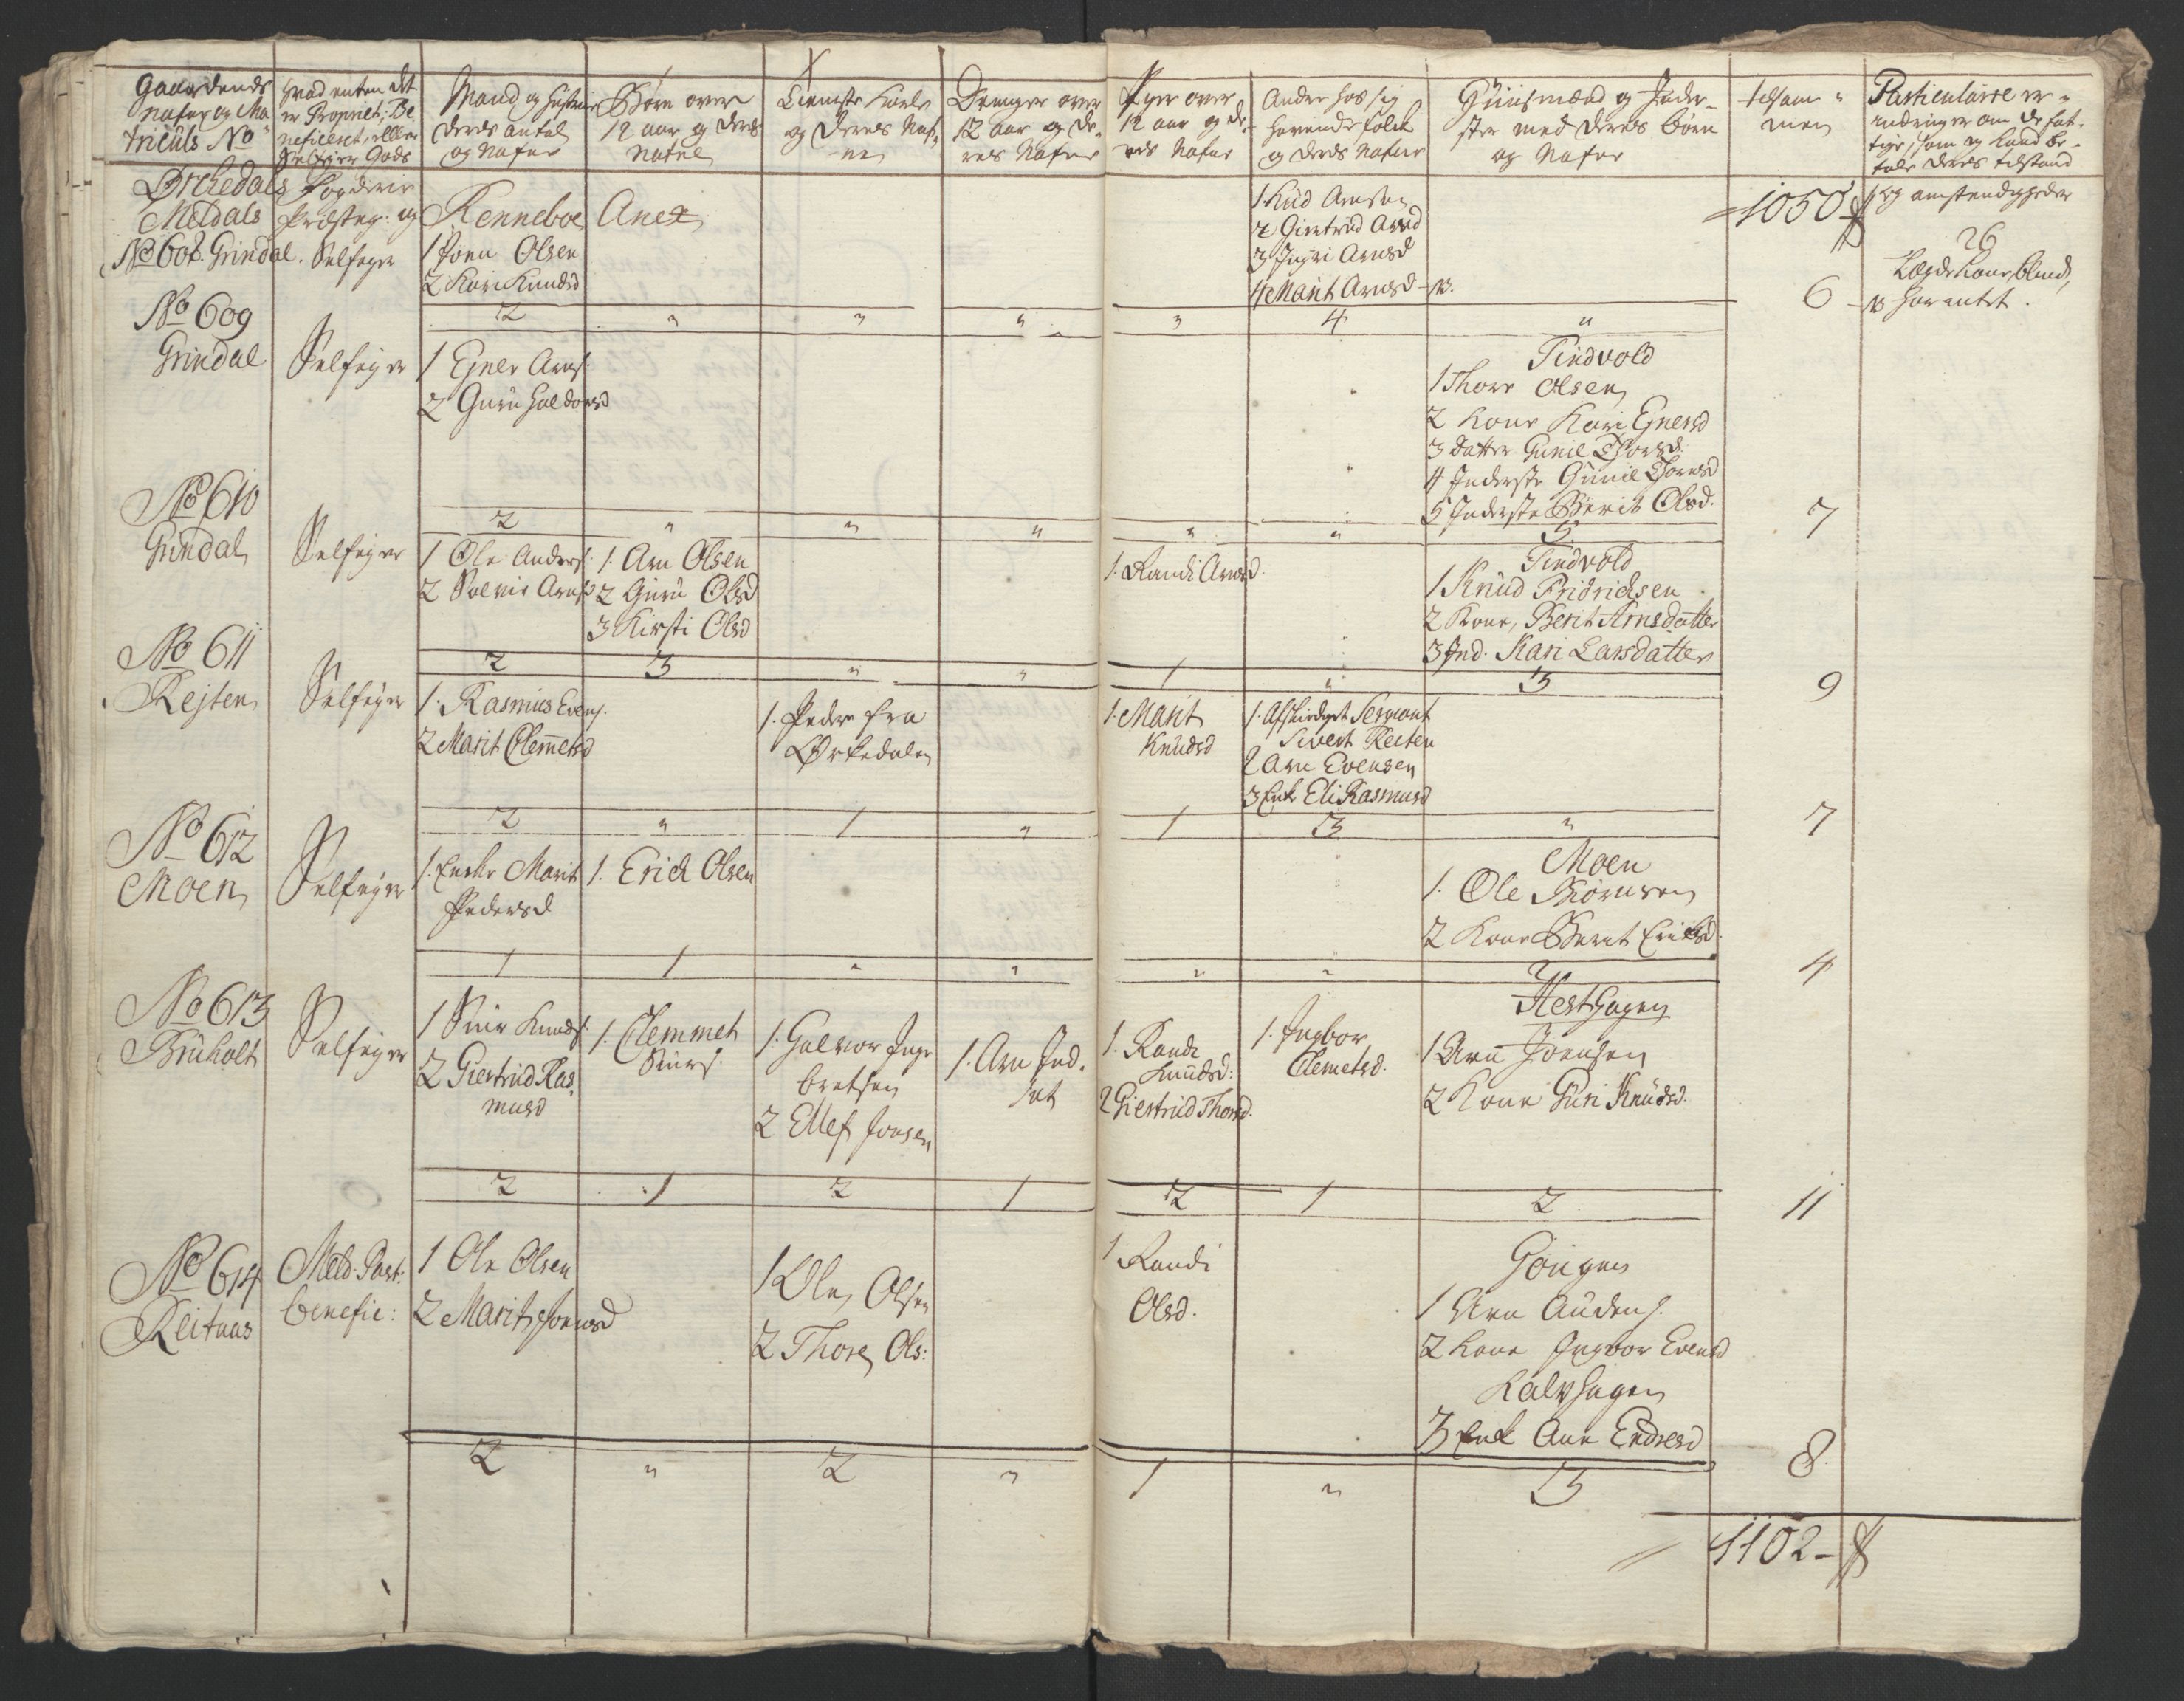 Gaardends
Nafn og Ma
triculs No
hvad enten det
er Propriet; Be
neficeret, eller
Selfeier Gods
Mand og Hustrue
deres antal
og Nafne
Børn over
12 aar og deres
nafne
Tieneste Karle
og deres Naf-
ne
Drenger over
12 aar og de-
res Nafne
Piger over
12 aar og de-
res Nafne
Andre hos sig
havende folck
og deres Nafne
Huusmænd og Inder-
ster med deres børn
og Nafne
tilsam-
men
Particulaire er-
indringer om de fat-
tige, som og hand be-
tale deres tilstand
og omstendigheder
Ørchedals Fogderie
Meldals Præsteg: og Renneboe Anex
1050
26
No 608 Grindal. Selfeyer
1 Joen Olsen
2 Kari Knudsd
1 Knud Arnsen
2 Giertrud Arnsd
3 Ingri Arnsd
4 Marit Arnsd
2 " " " " 4 "
6
Lægds Kone, blind,
har intet.
No 609
Grindal
Selfeyer
1 Ejner Arns:
2 Guru Haldorsd
Tindvold
1 Thore Olsen
2 Kone Kari Ejnersd
3 Datter Gunil Thorsd:
4 Inderste Gunil Thoresd
5 Inderste Berit Olsd.
2 " " " " " 5
7
No 610
Grindal
Selfeyer
1 Ole Anders:
2 Solvie Arnsd
1. Arn Olsen
2 Guru Olsd
3 Kirsti Olsd
1. Randi Arnsd.
Tindvold
1 Knud Fridrichsen
2 Kone, Berit Arnsdatter
3 Ind. Kari Larsdatter
2 3 " " 1 " 3
9
No 611
Rejten
Selfeyer
1. Rasmus Evens.
2 Marit Clemetsd
1. Peder fra
Ørkedalen
1. Marit
Knudsd
1. Afskediget Sergeant
Sivert Reiten
2 Arn Evensen
3 Enke Eli Rasmusd
2 " 1 " 1 3 "
7
No 612
Moen
Selfeyer
1. Enke Marit
Pedersd
1. Erick Olsen
Moen
1. Ole Biørnsen
2 Kone Berit Ericksd.
1 1 " " " " 2
4
No 613
Bruholt
Selfeyer
1 Siur Knuds:
2 Giertrud Ras
musd
1. Clemmet
Siurs:
1. Halvor Inge
bretsen
2 Ellef Jonsen
1. Arn Ind.
sat
1. Randi
Knudsd:
2 Giertrud Thorsd.
1. Ingbor
Clemetsd.
Hesthagen
1 Arn Joensen
2 Kone Guri Knudsd.
2 1 2 1 2 1 2
11
No 614
Reitaas
Meld. Past:
benefic:
1 Ole Olsen
2 Marit Joensd
1 Ole Olsen
2 Thore Ols:
1 Randi
Olsd.
1 Arn Audens.
2 Kone Ingbor Evensd
Kalvhagen
3 Enke Ane Endresd
2 " 2 " 1 " 3
8
1102